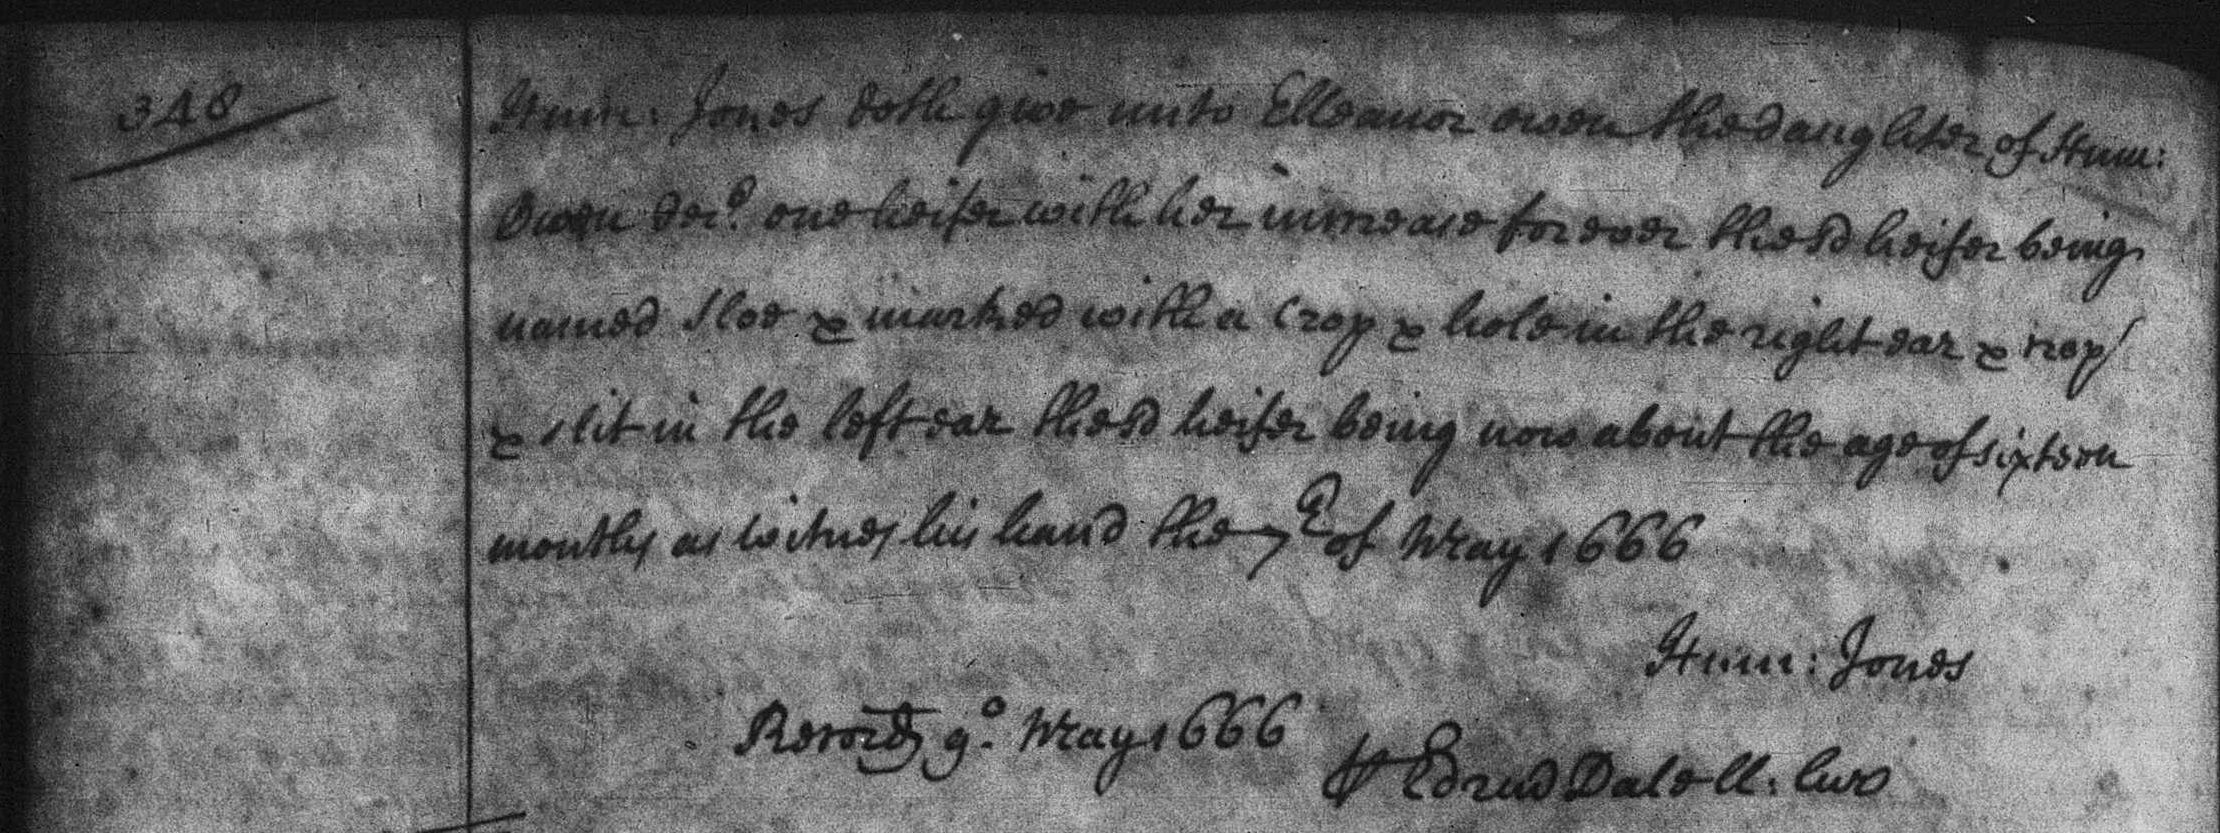 348
Hum: Jones doth give unto Elleanor owen the daughter of Hum:
Owen decd. one heifer with her increase for ever the sd heifer being
named Sloe & marked with a Crop & hole in the right ear & crop
& slit in the left ear the sd heifer being now about the age of sixteen
months as witnes his hand the 7th of May 1666
Hum: Jones
Recordr 9o. May 1666
p Edmd Dale Cl: Cur